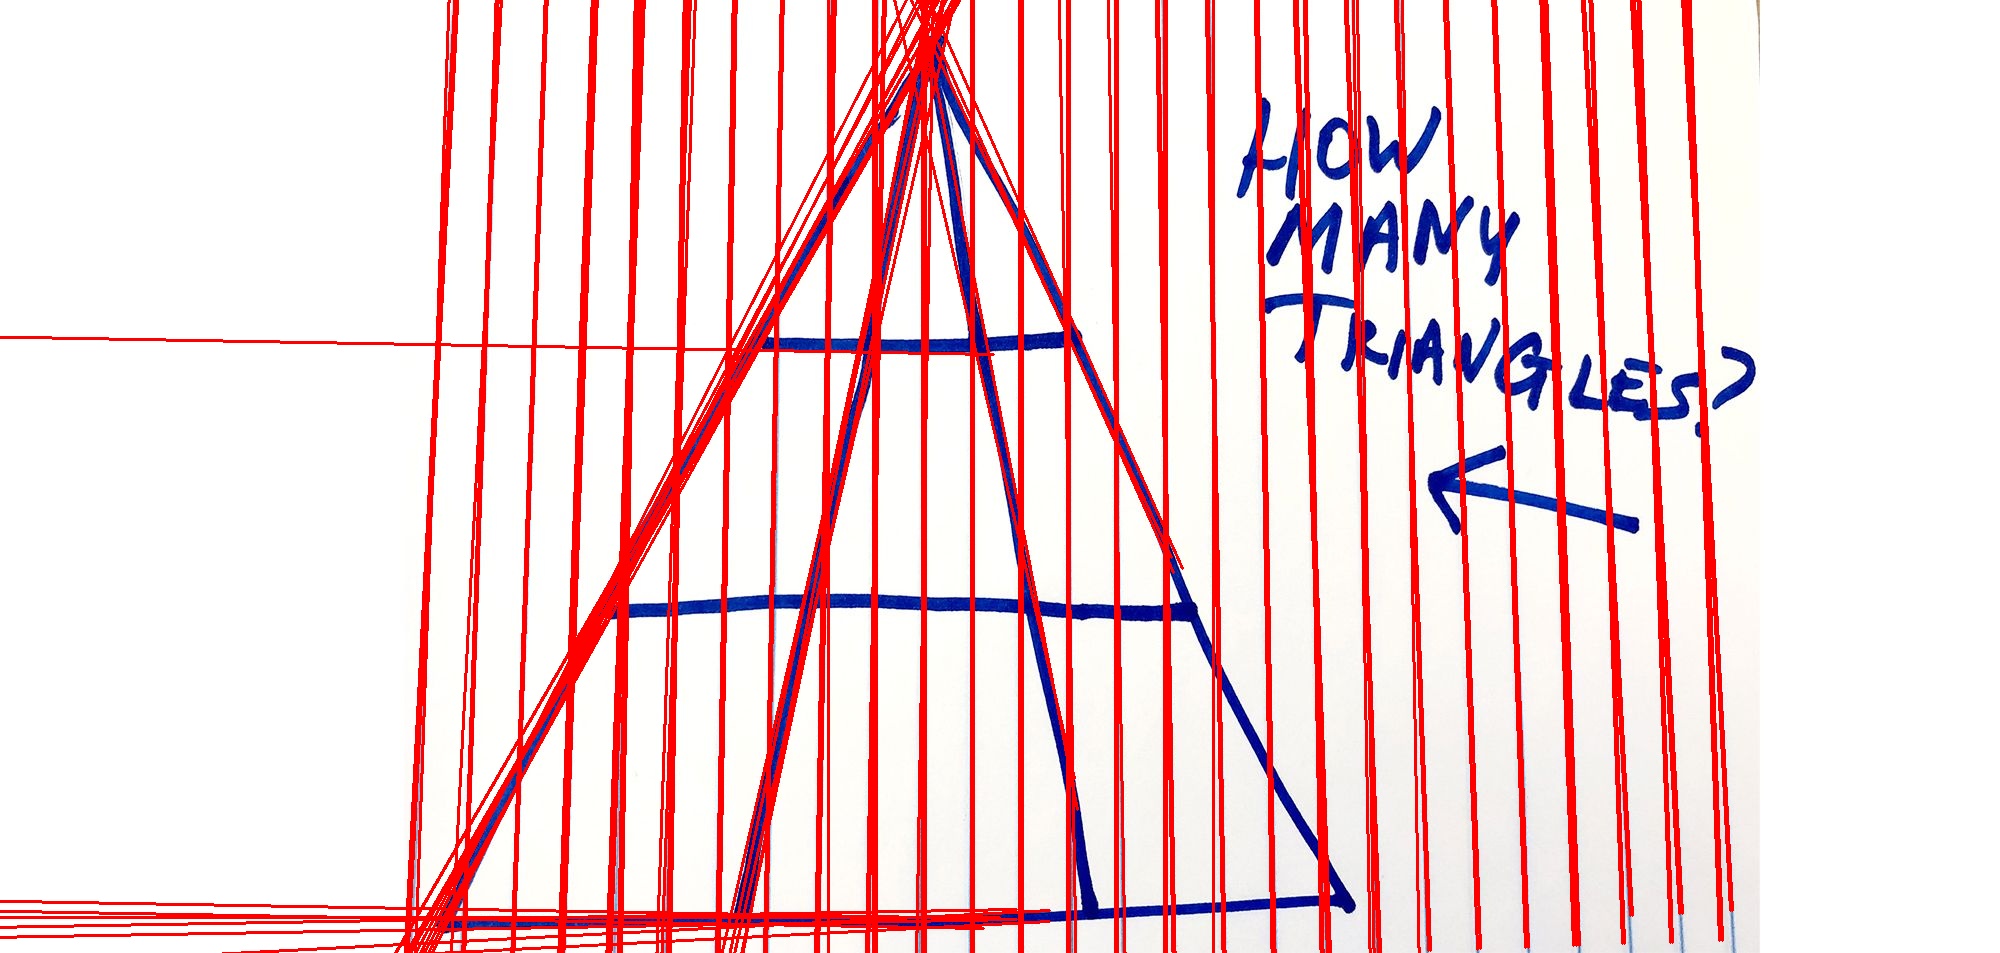 HOW
MANY
TRIANGLES?